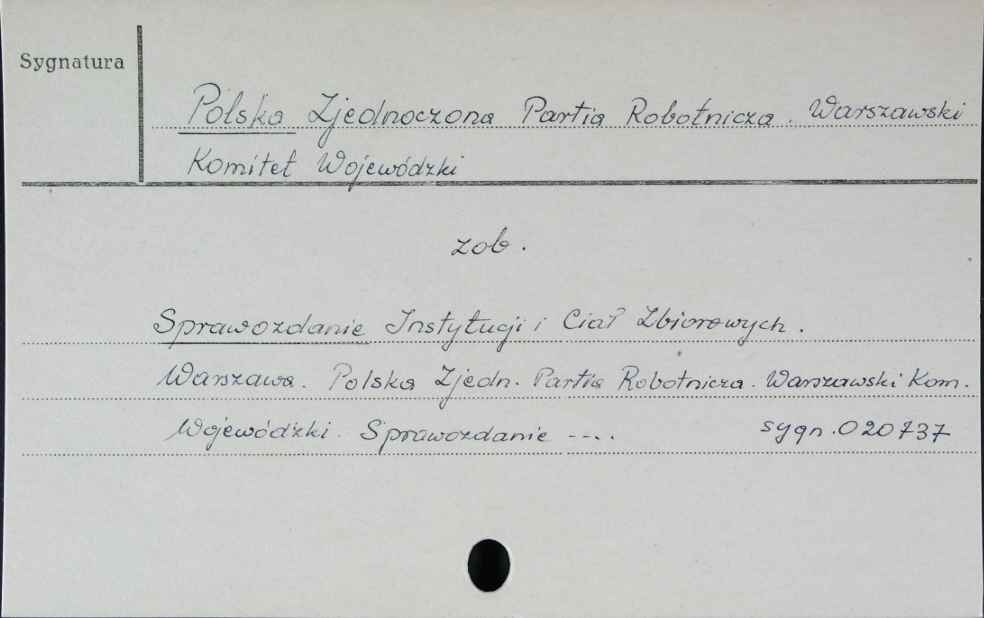 Sygnatura
Polska Zjednoczona Partia Robotnicza. Warszawski
Komitet Wojewódzki
zob.
Sprawozdanie Instytucji i Ciał Zbiorowych.
Warszawa. Polska Zjedn. Partia Robotnicza. Warszawski Kom.
Wojewódzki. Sprawozdanie ---. . sygn. 020737